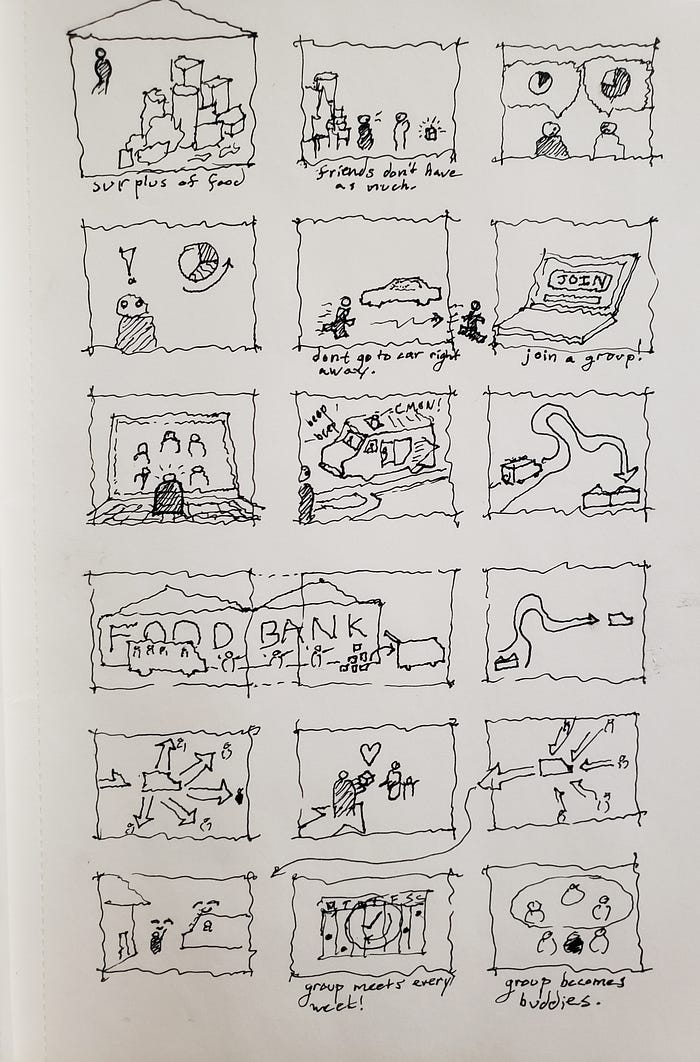 surplus of food
friends don't have
as much.
don't go to car right
away.
JOIN
join a group!
beep!
beep
C'MON!
FOOD BANK
group meets every
week!
group becomes
buddies.